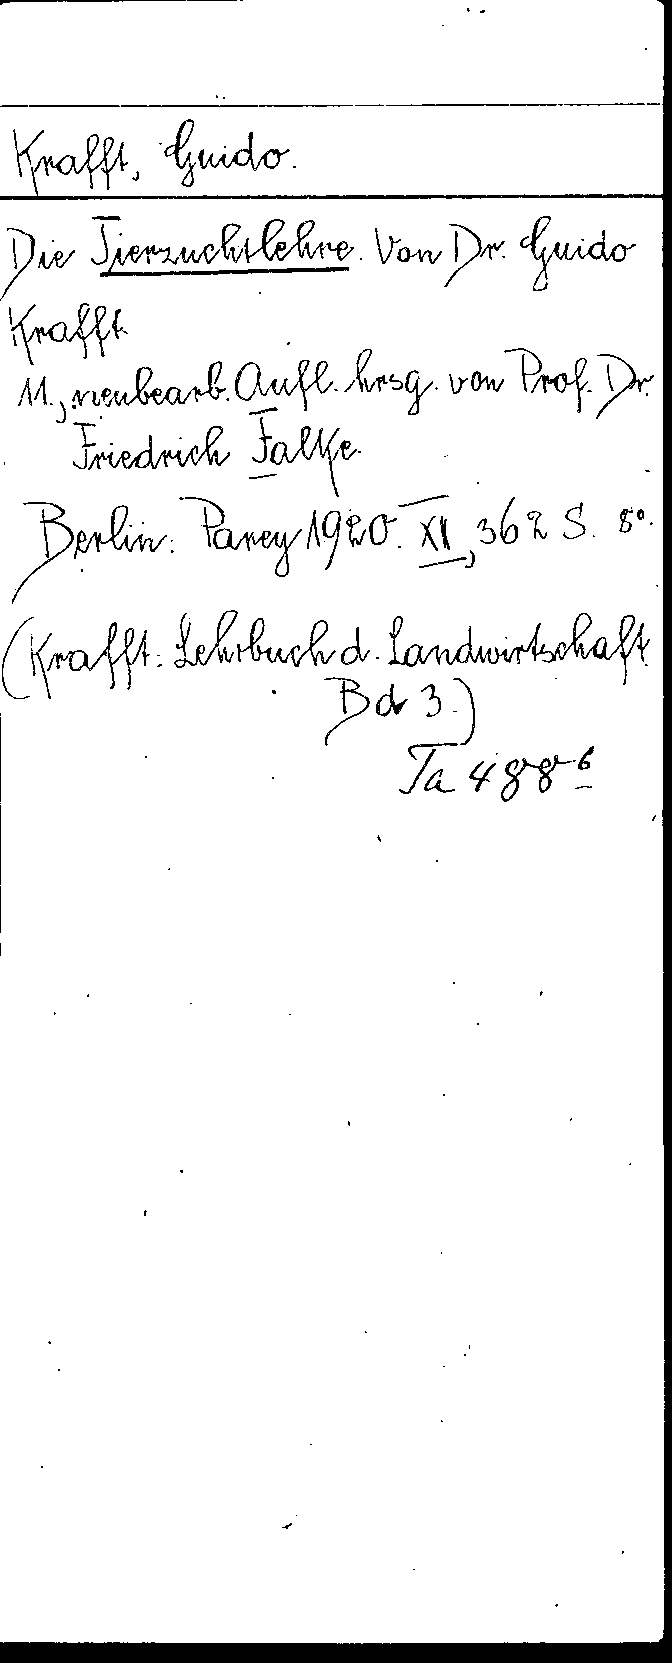 Krafft, Guido.
Die Tierzuchtlehre. Von Dr. Guido
Krafft.
11., neubearb. Aufl. hrsg. von Prof. Dr.
Friedrich Falke.
Berlin: Parey 1920. XI, 362 S. 8°.
(Krafft: Lehrbuch d. Landwirtschaft.
Bd 3.)
Ta 488 6